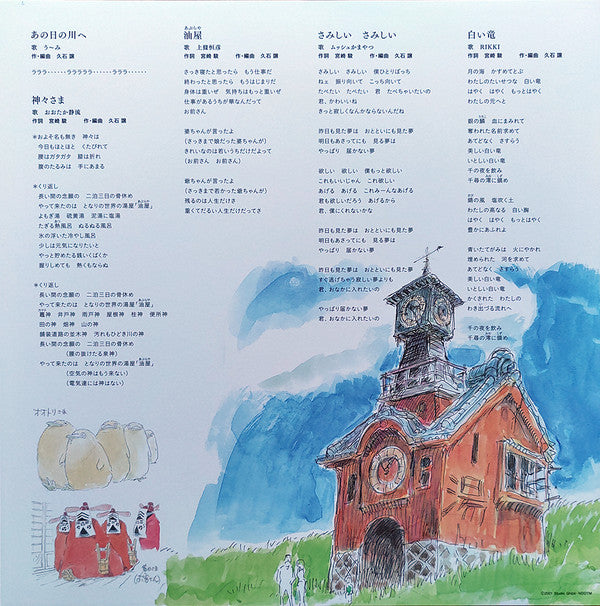 あの日の川へ
歌 う〜み
作・編曲 久石 譲
ラララ‥‥‥ラララララ‥‥‥ラララ‥‥
神々さま
歌 おおたか静流
作詞 宮崎 駿 作・編曲 久石 譲
*およそ名も無き 神々は
今日もほとほと くたびれて
腰はガタガタ 膝は折れ
腹のたるみは 手にあまる
*くり返し
長い間の念願の 二泊三日の骨休め
やって来たのは となりの世界の湯屋「油屋」
よもぎ湯 硫黄湯 泥湯に塩湯
たぎる熱風呂 ぬるぬる風呂
氷の浮いた冷やし風呂
少しは元気になりたいと
やっと貯めたる銭いくばくか
握りしめても 熱くもならぬ
*くり返し
長い間の念願の 二泊三日の骨休め
やって来たのは となりの世界の湯屋「油屋」
竈神 井戸神 雨戸神 屋根神 柱神 便所神
田の神 畑神 山の神
舗装道路の並木神 汚れもひどき川の神
長い間の念願の 二泊三日の骨休め
(腰の抜けたる泉神)
やって来たのは となりの世界の湯屋「油屋」
(空気の神はもう来ない)
(電気達には神はない)
オオトリさま
あぶらや
油屋
歌 上條恒彦
作詞 宮崎 駿 作・編曲 久石 譲
さっき寝たと思ったら もう仕事だ
終わったと思ったら もうはじまりだ
身体は重いぜ 気持ちはもっと重いぜ
仕事があるうちが華なんだって
お前さん
婆ちゃんが言ったよ
(さっきまで娘だった婆ちゃんが)
きれいなのは若いうちだけだよって
(お前さん お前さん)
爺ちゃんが言ったよ
(さっきまで若かった爺ちゃんが)
残るのは人生だけさ
重くてだるい人生だけだってさ
さみしい さみしい
歌 ムッシュかまやつ
作詞 宮崎 駿 作・編曲 久石 譲
さみしい さみしい 僕ひとりぼっち
ねェ 振りむいて こっち向いて
たべたい たべたい 君 たべちゃいたいの
君、かわいいね
きっと寂しくなんかならないんだね
昨日も見た夢は おとといにも見た夢
明日もあさってにも 見る夢は
やっぱり 届かない夢
欲しい 欲しい 僕もっと欲しい
これもいいじゃん これ欲しい
あげる あげる これみーんなあげる
君も欲しいだろう あげるから
君、僕にくれないかな
昨日も見た夢は おとといにも見た夢
明日もあさってにも 見る夢は
やっぱり 届かない夢
昨日も見た夢は おとといにも見た夢
すぐ逃げちゃう寂しい夢よりも
君、おなかに入れたいの
やっぱり 届かない夢
君、おなかに入れたいの
白い竜
歌 RIKKI
作詞 宮崎 駿 作・編曲 久石 譲
月の海 かすめてとぶ
わたしのたいせつな 白い竜
はやく はやく もっとはやく
わたしの元へと
銀の鱗 血にまみれて
奪われた名前求めて
あてどなく さすらう
美しい白い竜
いとしい白い竜
千の夜を飲み
千尋の澪に鎮め
鏡の風 塩吹く土
わたしの高なる 白い胸
はやく はやく もっとはやく
豊かにあふれよ
青いたてがみは 火にやかれ
埋められた 河を求めて
あてどなく さすらう
美しい白い竜
いとしい白い竜
かくされた わたしの
わき出づる流れへ
千の夜を飲み
千尋の澪に鎮め
©2001 Studio Ghibli・NDDTM